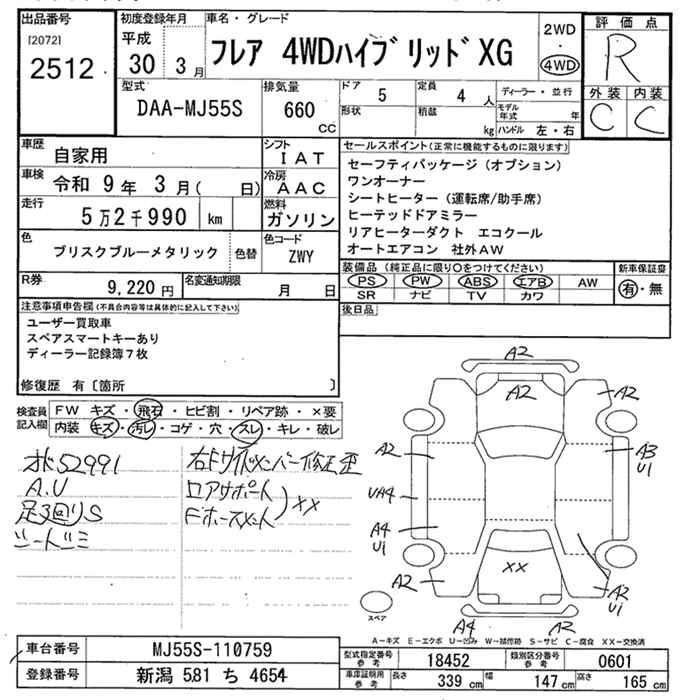 出品番号
[2072]
2512
初度登録年月
平成
30 3月
車名・グレード
フレア 4WDハイブリッド XG
2WD
・
4WD
評価点
R
外装 内装
C C
型式
DAA-MJ55S
排気量
660
cc
ドア
5
形状
定員
4 人
積載
kg
ディーラー・並行
モデル年式 年
ハンドル 左・右
車歴
自家用
シフト
IAT
車検
令和 9年 3月( 日)
冷房
AAC
走行
5万2千990 km
燃料
ガソリン
色
ブリスクブルーメタリック
色替
色コード
ZWY
R券
9,220円
名変通知期限
月 日
セールスポイント(正常に機能するものに限ります)
セーフティパッケージ(オプション)
ワンオーナー
シートヒーター(運転席/助手席)
ヒーテッドドアミラー
リアヒーターダクト エコクール
オートエアコン 社外AW
装備品(純正品に限り○をつけてください)
PS PW ABS エアB AW
SR ナビ TV カワ
新車保証書
有・無
後日品
注意事項申告欄(不具合内容等は具体的に記入して下さい)
ユーザー買取車
スペアスマートキーあり
ディーラー記録簿7枚
修復歴 有〔箇所 〕
検査員記入欄
FW キズ・飛石・ヒビ割・リペア跡・×要
内装 キズ・汚レ・コゲ・穴・スレ・キレ・破レ
52991
A.U
足廻りS
シートシミ
修正歪
ロアサポート
XX
A2
A2
A2
A2
A3
U1
UA4
A4
U1
A2
XX
A2
U1
A4
A2
スペア
A-キズ E-エクボ U-凹み W-補修跡 S-サビ C-腐食 XX-交換済
車台番号
MJ55S-110759
登録番号
新潟 581 ち 4654
型式指定番号
参考
18452
類別区分番号
参考
0601
車庫証明用
参考
長さ 339 cm
幅 147 cm
高さ 165 cm